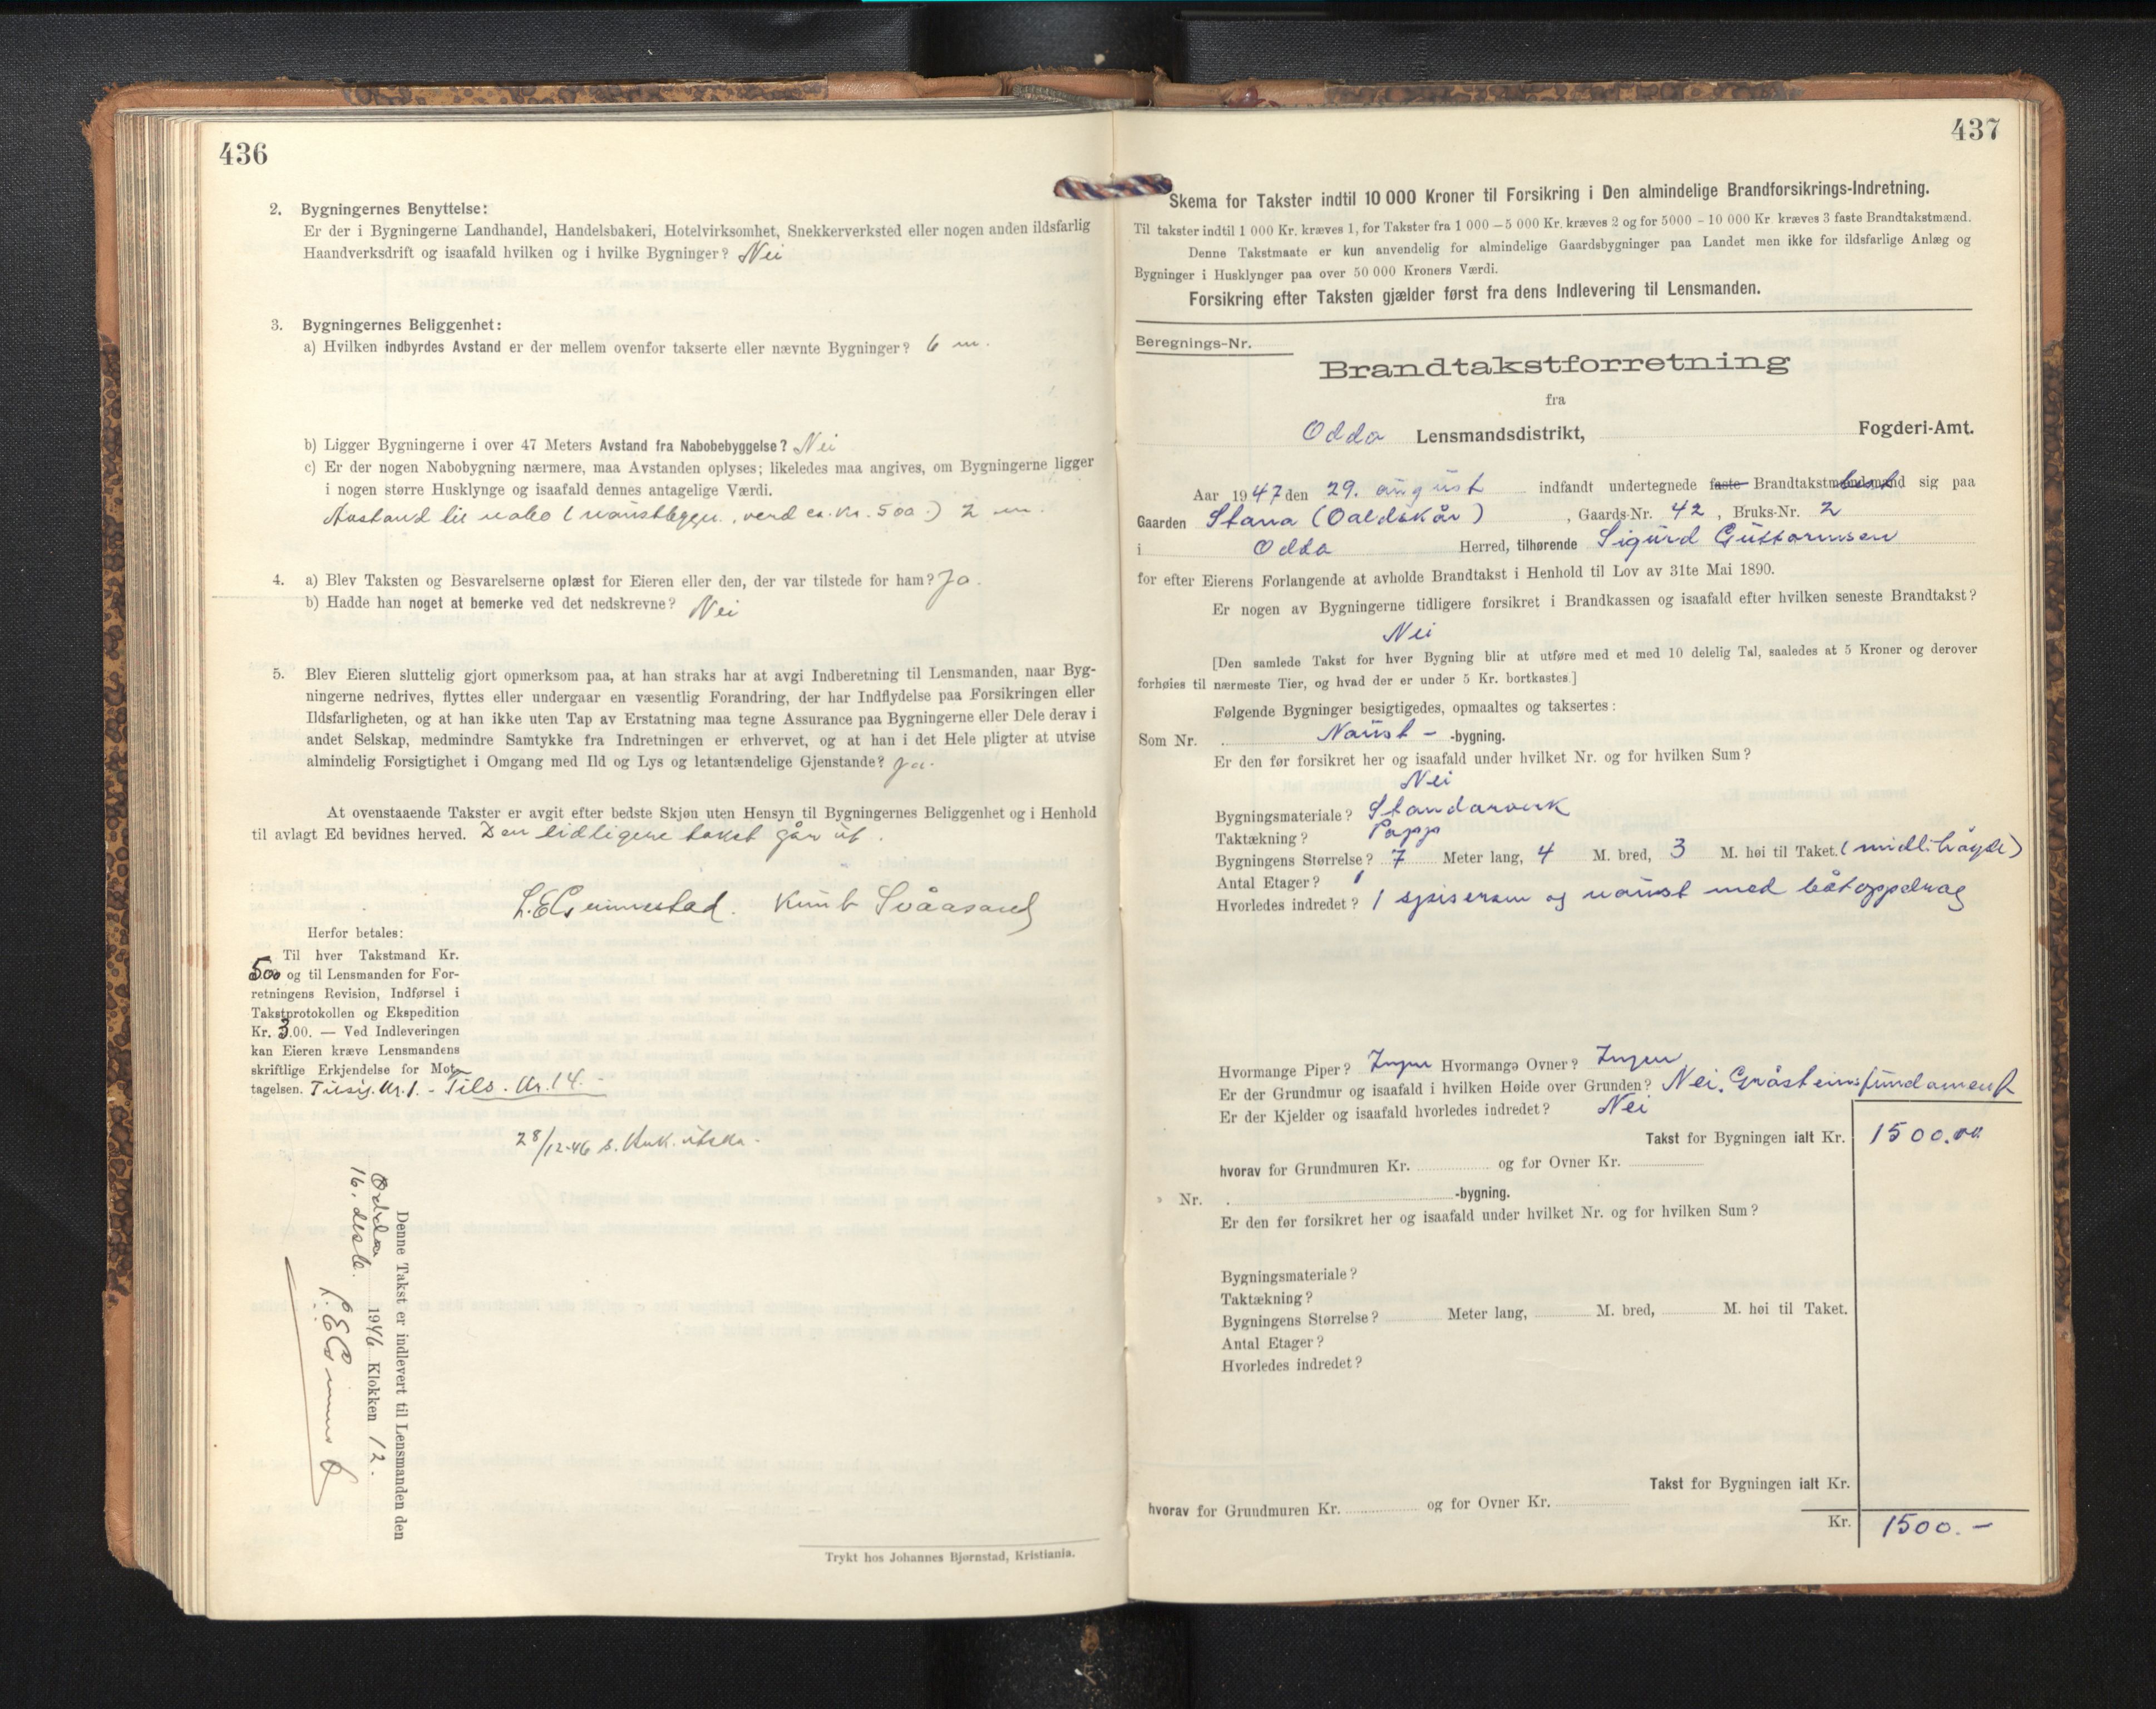 436
2. Bygningernes Benyttelse:
Er der i Bygningerne Landhandel, Handelsbakeri, Hotelvirksomhet, Snekkerverksted eller nogen anden ildsfarlig
Haandverksdrift og isaafald hvilken og i hvilke Bygninger? Nei
3. Bygningernes Beliggenhet:
a) Hvilken indbyrdes Avstand er der mellem ovenfor takserte eller nævnte Bygninger? 6 m.
b) Ligger Bygningerne i over 47 Meters Avstand fra Nabobebyggelse? Nei
c) Er der nogen Nabobygning nærmere, maa Avstanden oplyses; likeledes maa angives, om Bygningerne ligger
i nogen større Husklynge og isaafald dennes antagelige Værdi.
Avstand til nabo ( verd ca. kr. 500.) 2 m.
4. a) Blev Taksten og Besvarelserne oplæst for Eieren eller den, der var tilstede for ham? Ja.
b) Hadde han noget at bemerke ved det nedskrevne? Nei
5. Blev Eieren sluttelig gjort opmerksom paa, at han straks har at avgi Indberetning til Lensmanden, naar Byg-
ningerne nedrives, flyttes eller undergaar en væsentlig Forandring, der har Indflydelse paa Forsikringen eller
Ildsfarligheten, og at han ikke uten Tap av Erstatning maa tegne Assurance paa Bygningerne eller Dele derav i
andet Selskap, medmindre Samtykke fra Indretningen er erhvervet, og at han i det Hele pligter at utvise
almindelig Forsigtighet i Omgang med Ild og Lys og letantændelige Gjenstande? Ja.
At ovenstaaende Takster er avgit efter bedste Skjøn uten Hensyn til Bygningernes Beliggenhet og i Henhold
til avlagt Ed bevidnes herved. Den tidligere takst går ut.
Knut Svåasand
Herfor betales:
Til hver Takstmand Kr.
5.00 og til Lensmanden for For-
retningens Revision, Indførsel i
Takstprotokollen og Ekspedition
Kr. 3.00. — Ved Indleveringen
kan Eieren kræve Lensmandens
skriftlige Erkjendelse for Mot-
tagelsen. Kr. 1. - Tils. Kr. 14.-
28/12-46 s.
Denne Takst er indlevert til Lensmanden den
Odda
16. desb. 1946 Klokken 12.
Trykt hos Johannes Bjørnstad, Kristiania.
437
Skema for Takster indtil 10 000 Kroner til Forsikring i Den almindelige Brandforsikrings-Indretning.
Til takster indtil 1 000 Kr. kræves 1, for Takster fra 1 000 – 5 000 Kr. kræves 2 og for 5000 – 10 000 Kr. kræves 3 faste Brandtakstmænd.
Denne Takstmaate er kun anvendelig for almindelige Gaardsbygninger paa Landet men ikke for ildsfarlige Anlæg og
Bygninger i Husklynger paa over 50 000 Kroners Værdi.
Forsikring efter Taksten gjælder først fra dens Indlevering til Lensmanden.
Beregnings-Nr.
Brandtakstforretning
fra
Odda Lensmandsdistrikt, Fogderi-Amt.
Aar 1947 den 29. august indfandt undertegnede faste Brandtakstmænd sig paa
Gaarden Stana (Oaldskår), Gaards-Nr. 42, Bruks-Nr. 2
i Odda Herred, tilhørende Sigurd Guttormsen
for efter Eierens Forlangende at avholde Brandtakst i Henhold til Lov av 31te Mai 1890.
Er nogen av Bygningerne tidligere forsikret i Brandkassen og isaafald efter hvilken seneste Brandtakst?
Nei
[Den samlede Takst for hver Bygning blir at utføre med et med 10 delelig Tal, saaledes at 5 Kroner og derover
forhøies til nærmeste Tier, og hvad der er under 5 Kr. bortkastes.]
Følgende Bygninger besigtigedes, opmaaltes og taksertes:
Som Nr. Naust - -bygning.
Er den før forsikret her og isaafald under hvilket Nr. og for hvilken Sum?
Nei
Bygningsmateriale? Standarverk
Taktækning? Papp
Bygningens Størrelse? 7 Meter lang, 4 M. bred, 3 M. høi til Taket. (midl. høyde)
Antal Etager? 1
Hvorledes indredet? 1 spiserom og naust med båtoppdrag
Hvormange Piper? Ingen Hvormange Ovner? Ingen
Er der Grundmur og isaafald i hvilken Høide over Grunden? Nei. Gråsteinsfundament
Er der Kjelder og isaafald hvorledes indredet? Nei
Takst for Bygningen ialt Kr. 1500.00
hvorav for Grundmuren Kr. og for Ovner Kr.
» Nr. -bygning.
Er den før forsikret her og isaafald under hvilket Nr. og for hvilken Sum?
Bygningsmateriale?
Taktækning?
Bygningens Størrelse? Meter lang, M. bred, M. høi til Taket.
Antal Etager?
Hvorledes indredet?
Takst for Bygningen ialt Kr.
hvorav for Grundmuren Kr. og for Ovner Kr.
Kr. 1500.-